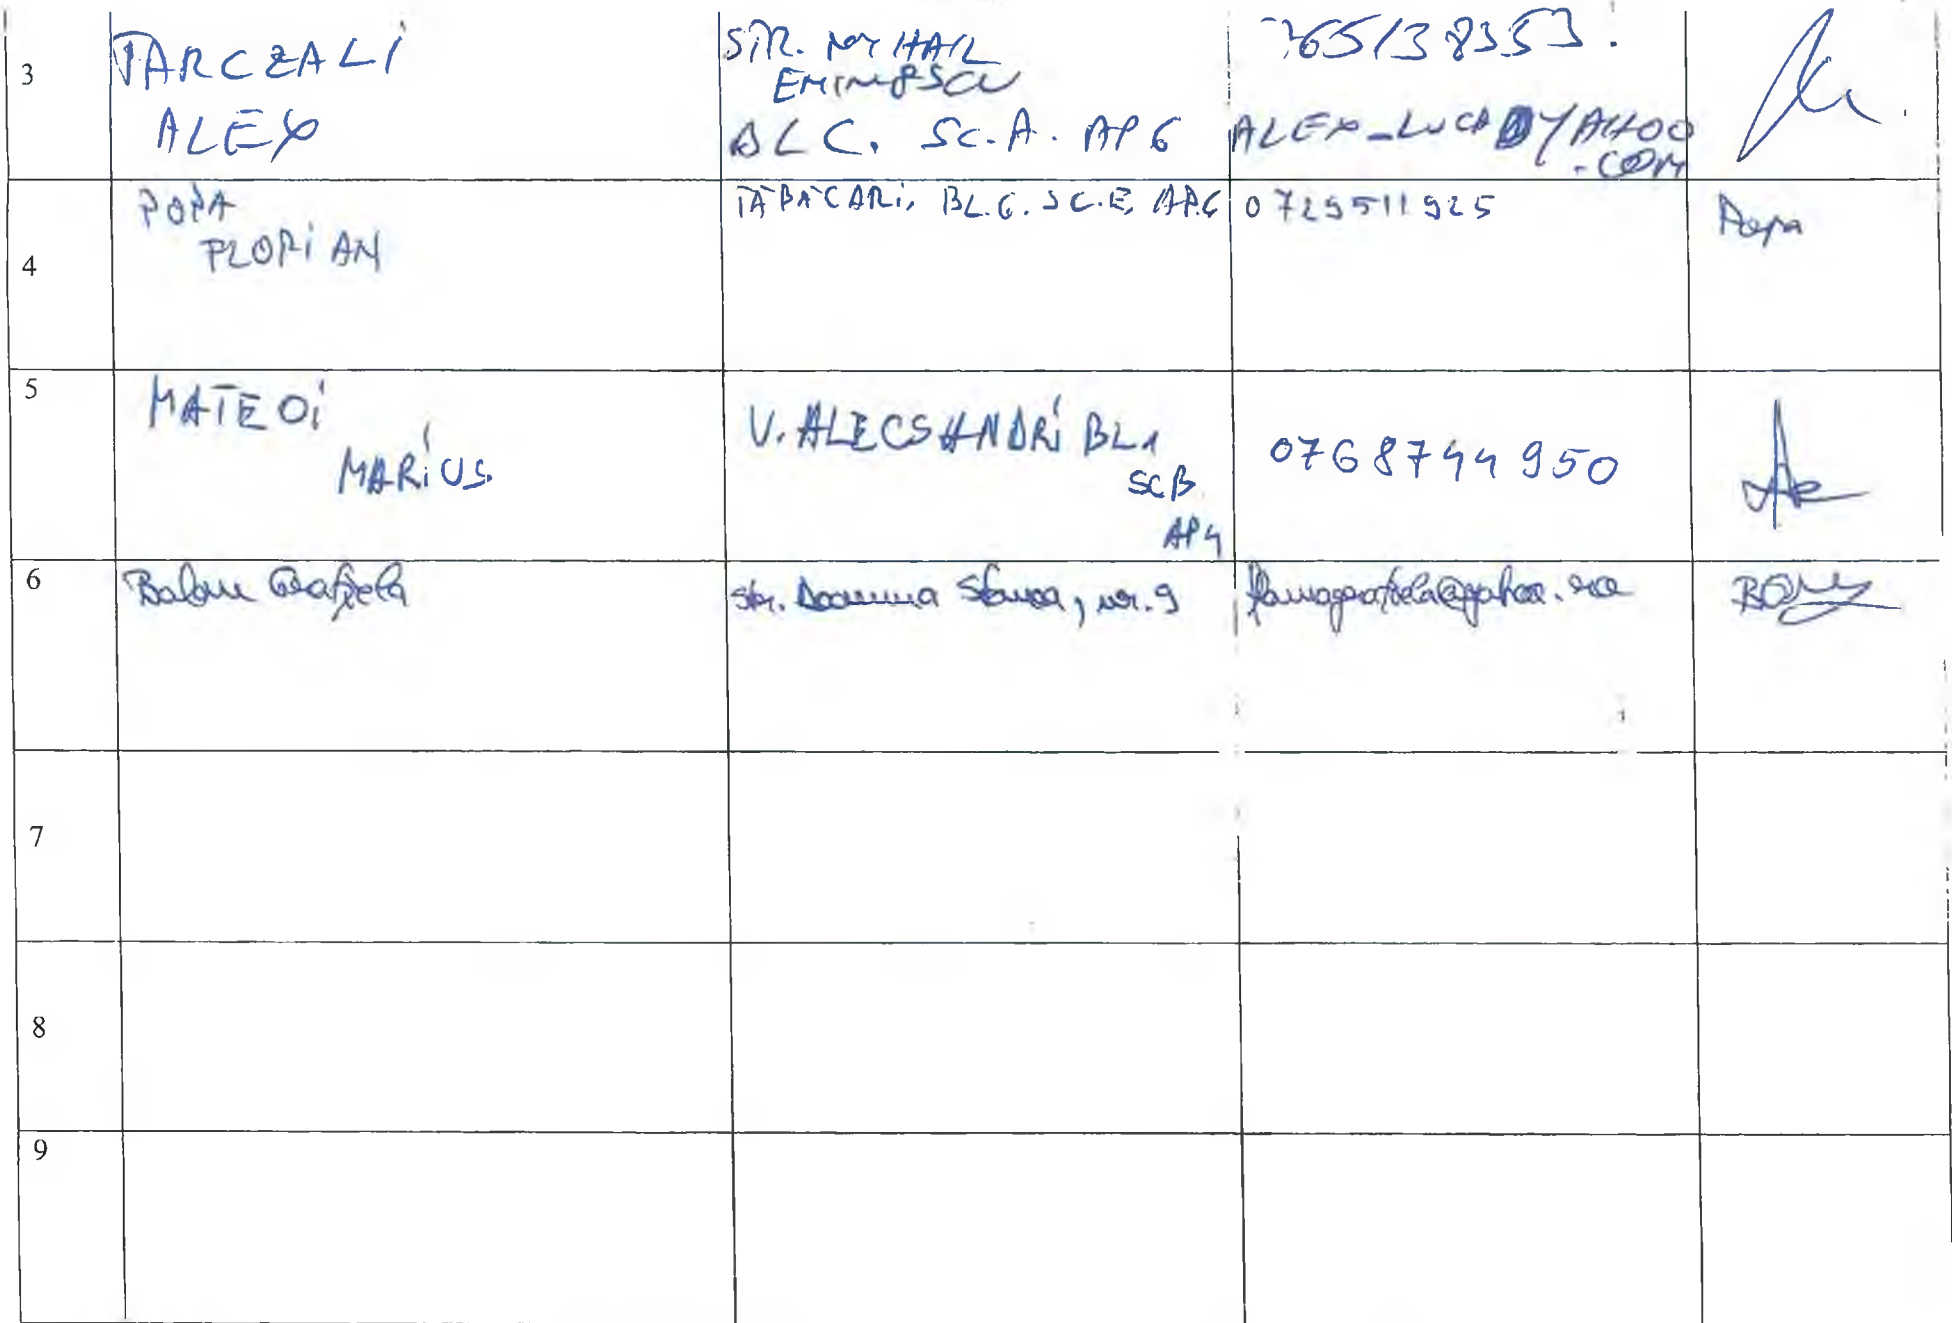 3
TARCZALI
ALEX
STR. MYHAIL
EMINESCU
BLC. SC.A. AP 6
765138353.
ALEX_LUCA@YAHOO
.COM
4
POPA
FLORIAN
TABACARI, BL.6. SC.E, AP.6
0729511925
Popa
5
MATEOI
MARIUS.
V. ALECSANDRI BL1
SCB
AP4
0768744950
6
str. Doamna Stanca, nr. 9
7
8
9